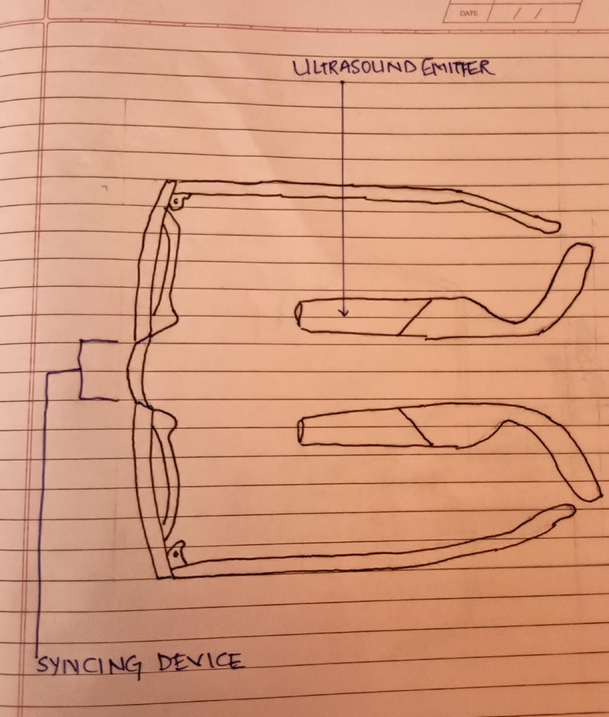 DATE
ULTRASOUND EMITTER
SYNCING DEVICE